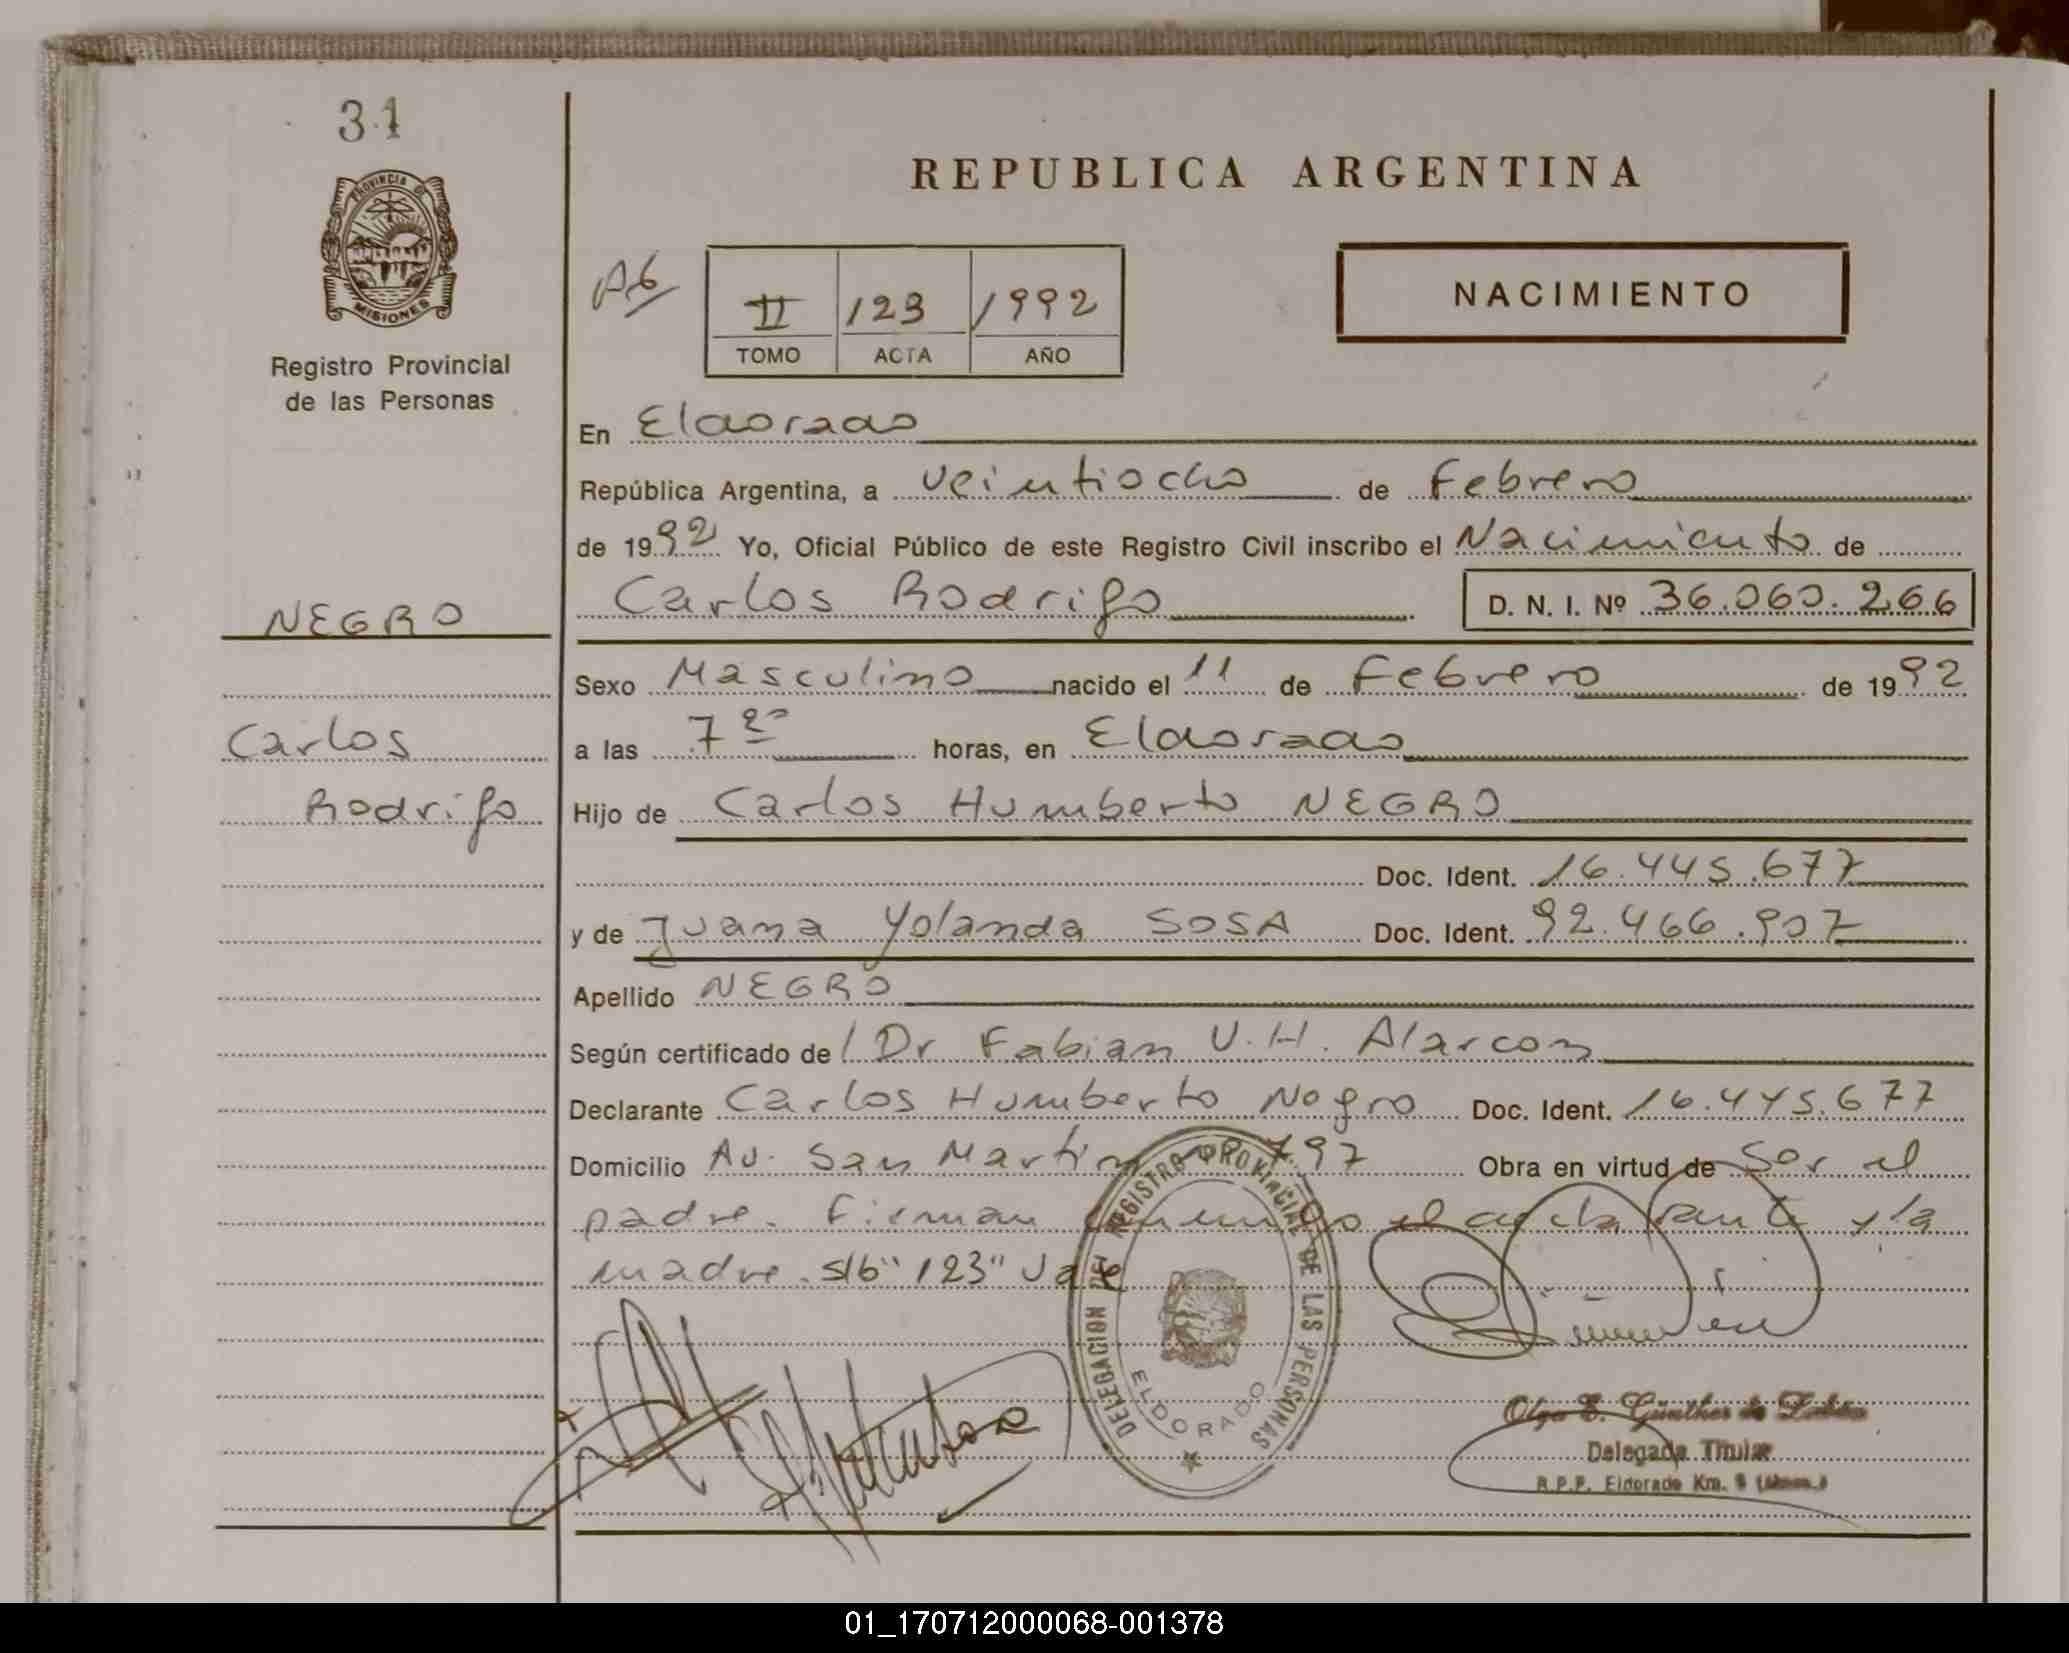 31
PROVINCIA DE
MISIONES
Registro Provincial
de las Personas
REPUBLICA ARGENTINA
II 123 1992
TOMO ACTA AÑO
NACIMIENTO
En Eldorado
República Argentina, a veintiocho de Febrero
de 1992 Yo, Oficial Público de este Registro Civil inscribo el Nacimiento de
Carlos Rodrigo D. N. I. Nº 36.060.266
NEGRO
Sexo Masculino nacido el 11 de Febrero de 1992
Carlos
a las 7 horas, en Eldorado
Rodrigo
Hijo de Carlos Humberto NEGRO
Doc. Ident. 16.445.677
y de Juana Yolanda SOSA Doc. Ident. 92.466.907
Apellido NEGRO
Según certificado de Dr Fabian V.H. Alarcon
Declarante Carlos Humberto Negro Doc. Ident. 16.445.677
Domicilio Av. San Martin nº 797 Obra en virtud de ser el
padre. Firman conmigo el declarante y la
madre. s/b "123" Vale
DELEGACION DEL REGISTRO PROVINCIAL DE LAS PERSONAS
ELDORADO
Olga E. Günther de
Delegada Titular
R.P.P. Eldorado Km. 9
01_170712000068-001378